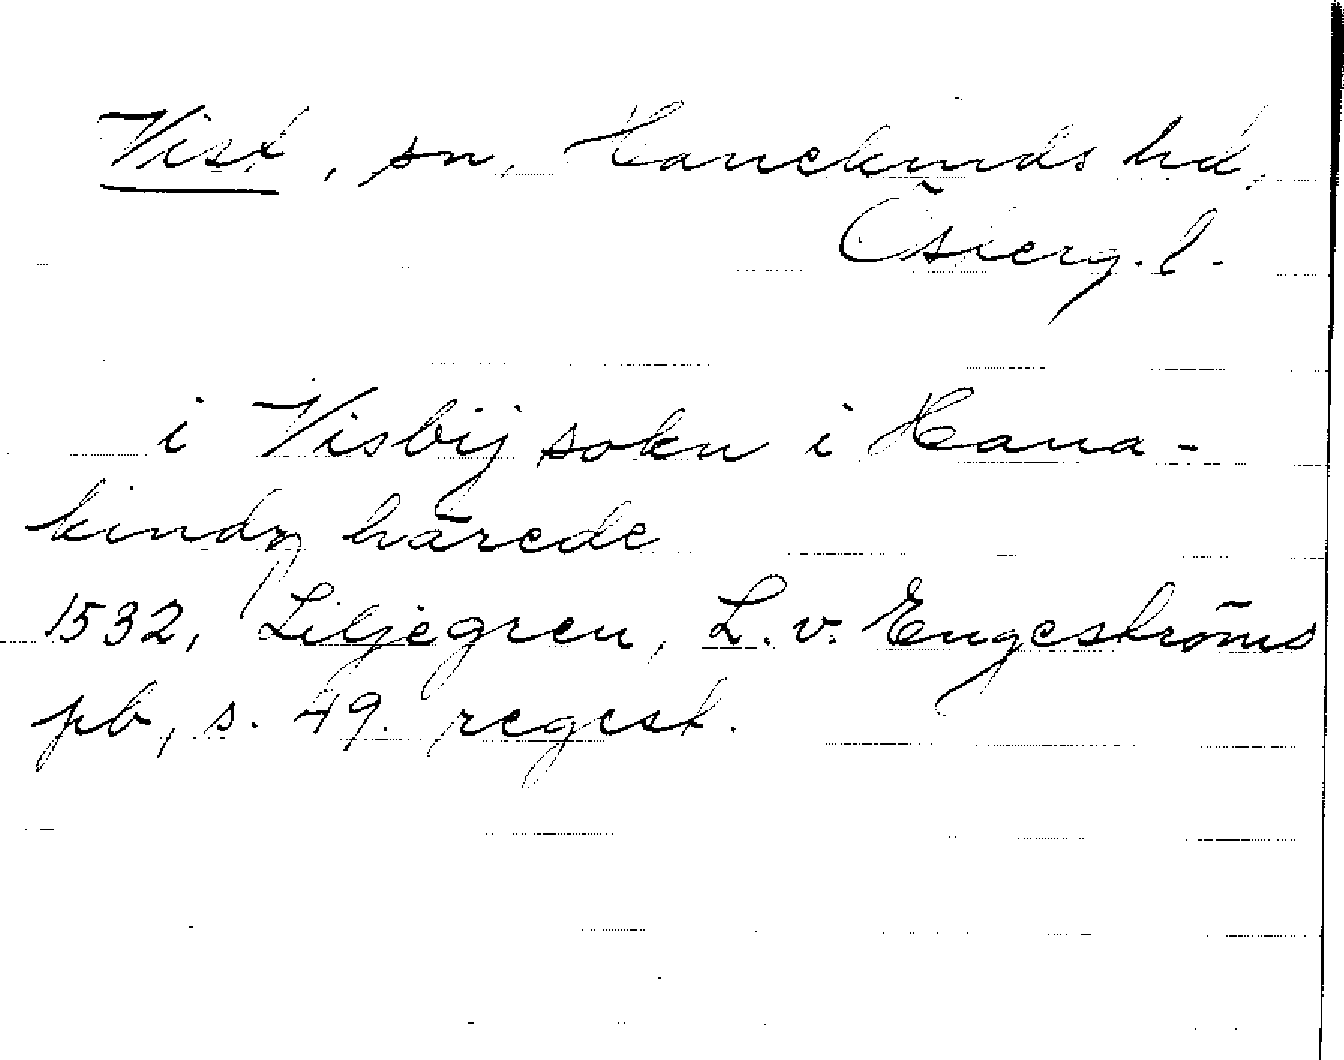 Vist, sn, Hanekinds hd,
Österg. l.
i Visbij sokn i Hana-
kindz härede
1532, Liljegren, L. v. Engeströms
pb, s. 49. regest.